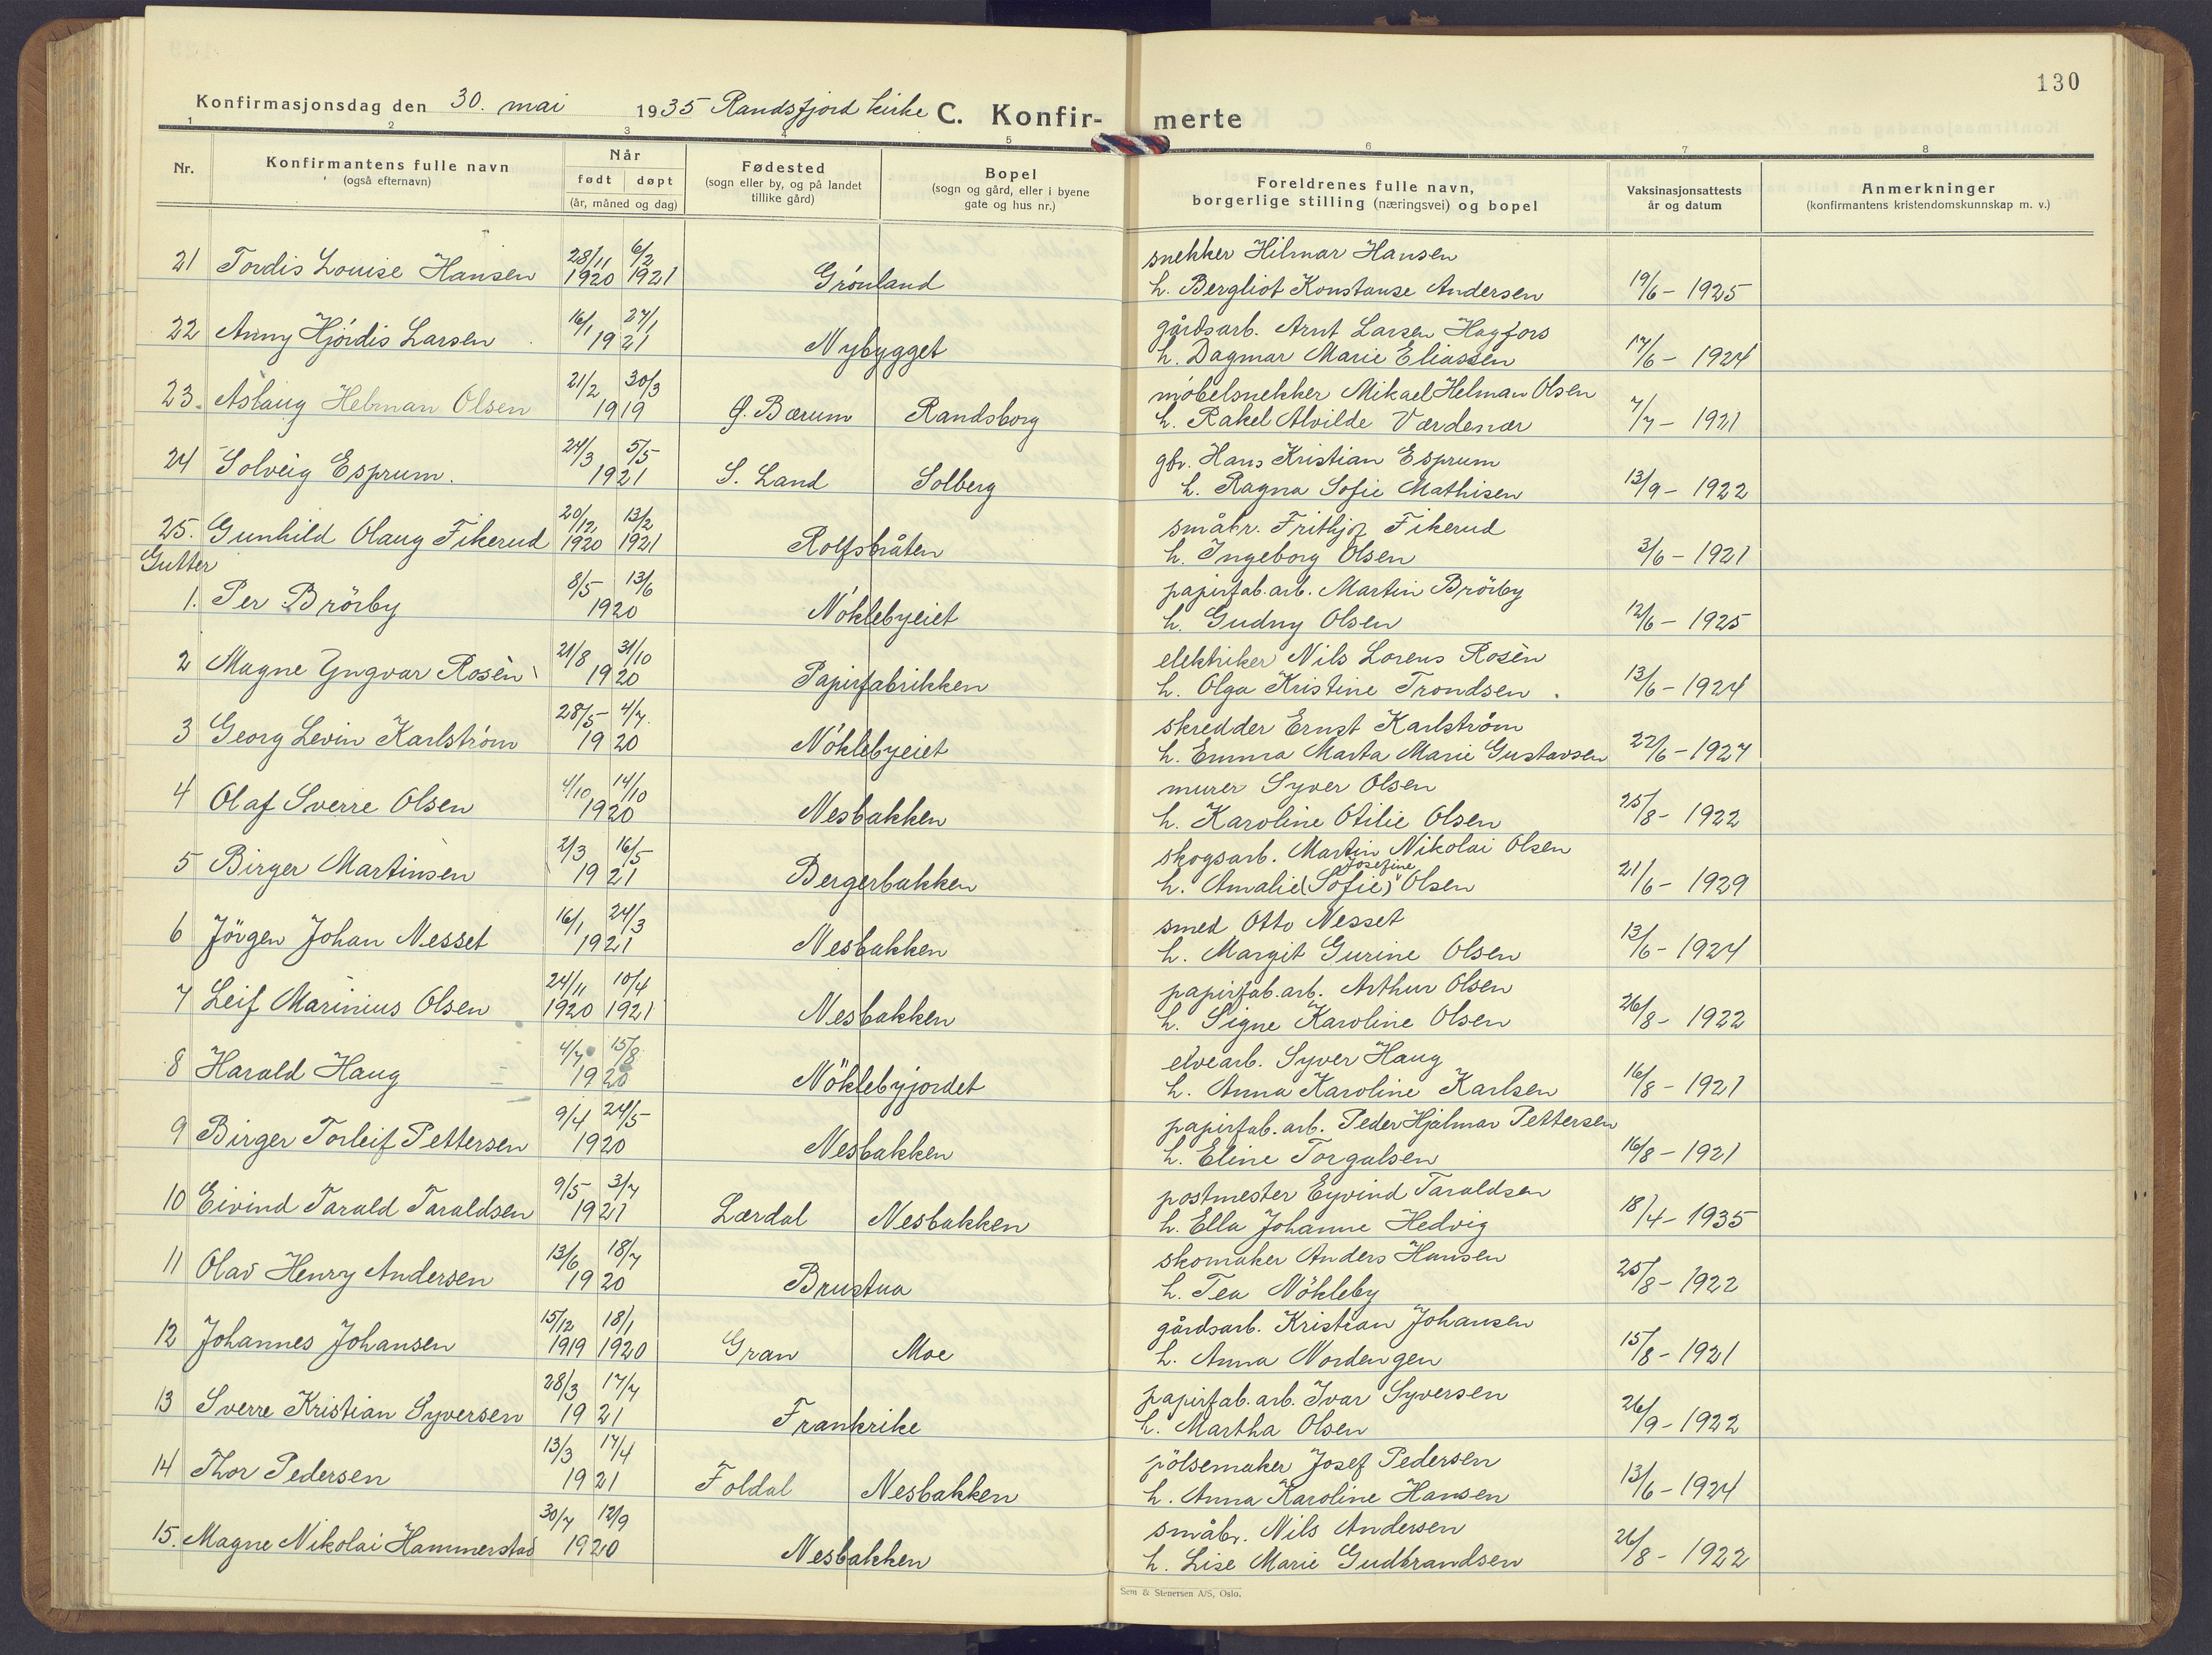 130
Konfirmasjonsdag den 30. mai 1935 Randsfjord kirke C. Konfir- merte
1 2 3 4 5 6 7 8
Nr. Konfirmantens fulle navn (også efternavn) Når født døpt (år, måned og dag) Fødested (sogn eller by, og på landet tillike gård) Bopel (sogn og gård, eller i byene gate og hus nr.) Foreldrenes fulle navn, borgerlige stilling (næringsvei) og bopel Vaksinasjonsattests år og datum Anmerkninger (konfirmantens kristendomskunnskap m. v.)
21 Tordis Louise Hansen 28/11 1920 6/2 1921 Grönland snekker Hilmar Hansen
h. Bergliot Konstanse Andersen 19/6 - 1925
22 Anny Hjördis Larsen 16/1 27/1 1921 Nybygget gårdsarb. Arnt Larsen Hagfors
h. Dagmar Marie Eliassen 17/6 - 1924
23. Aslaug Helman Olsen 21/2 30/3 1919 Ø. Bærum Randsborg möbelsnekker Mikael Helman Olsen
h. Rakel Alvilde Værdenær 7/7 - 1921
24 Solveig Esprum. 24/3 5/5 1921 S. Land Solberg gbr. Hans Kristian Esprum
h. Ragna Sofie Mathisen 13/9 - 1922
25. Gunhild Olaug Fikerud 20/12 1920 13/2 1921 Rolfsbråten småbr. Frithjof Fikerud
h. Ingeborg Olsen 3/6 - 1921
Gutter
1. Per Brörby 8/5 13/6 1920 Nöklebyeiet papirfab.arb. Martin Brörby
h. Gudny Olsen 12/6 - 1925
2 Magne Yngvar Rosèn 21/8 31/10 1920 Papirfabrikken elektriker Nils Lorens Rosèn
h. Olga Kristine Trondsen. 13/6 - 1924
3 Georg Levin Karlström 28/5 4/7. 1920 Nöklebyeiet skredder Ernst Karlström
h. Emma Marta Marie Gustavsen 22/6 - 1927
4 Olaf Sverre Olsen 4/10 14/10 1920 Nesbakken murer Syver Olsen
h. Karoline Otilie Olsen 25/8 - 1922
5 Birger Martinsen 2/3 16/5 1921 Bergerbakken skogsarb. Martin Nikolai Olsen
h. Amalie (Sofie) Josefine Olsen 21/6 - 1929
6 Jörgen Johan Nesset 16/1 24/3 1921 Nesbakken smed Otto Nesset
h. Margit Gurine Olsen 13/6 - 1924
7 Leif Marinius Olsen 24/11 1920 10/4 1921 Nesbakken papirfab.arb. Arthur Olsen
h. Signe Karoline Olsen 26/8 - 1922
8 Harald Haug 4/7 15/8 1920 Nöklebyjordet elvearb. Syver Haug
h. Anna Karoline Karlsen 16/8 - 1921
9 Birger Torleif Pettersen 9/4 24/5 1920 Nesbakken papirfab.arb. Peder Hjalmar Pettersen
h. Eline Torgalsen 16/8 - 1921
10 Eivind Tarald Taraldsen 9/5 3/7 1921 Lærdal Nesbakken postmester Eyvind Taraldsen
h. Ella Johanne Hedvig 18/4 - 1935
11 Olav Henry Andersen 13/6 18/7 1920 Brustua skomaker Anders Hansen
h. Tea Nökleby 25/8 - 1922
12 Johannes Johansen 15/12 1919 18/1 1920 Gran Moe gårdsarb. Kristian Johansen
h. Anna Nordengen 15/8 - 1921
13 Sverre Kristian Syversen 28/3 17/7 1921 Frankrike papirfab.arb. Ivar Syversen
h. Martha Olsen 26/9 - 1922
14 Thor Pedersen 13/3 17/4 1921 Foldal Nesbakken pölsemaker Josef Pedersen
h. Anna Karoline Hansen 13/6 - 1924
15. Magne Nikolai Hammerstad 30/7 12/9 1920 Nesbakken småbr. Nils Andersen
h. Lise Marie Gudbrandsen 26/8 - 1922
Sem & Stenersen A/S, Oslo.